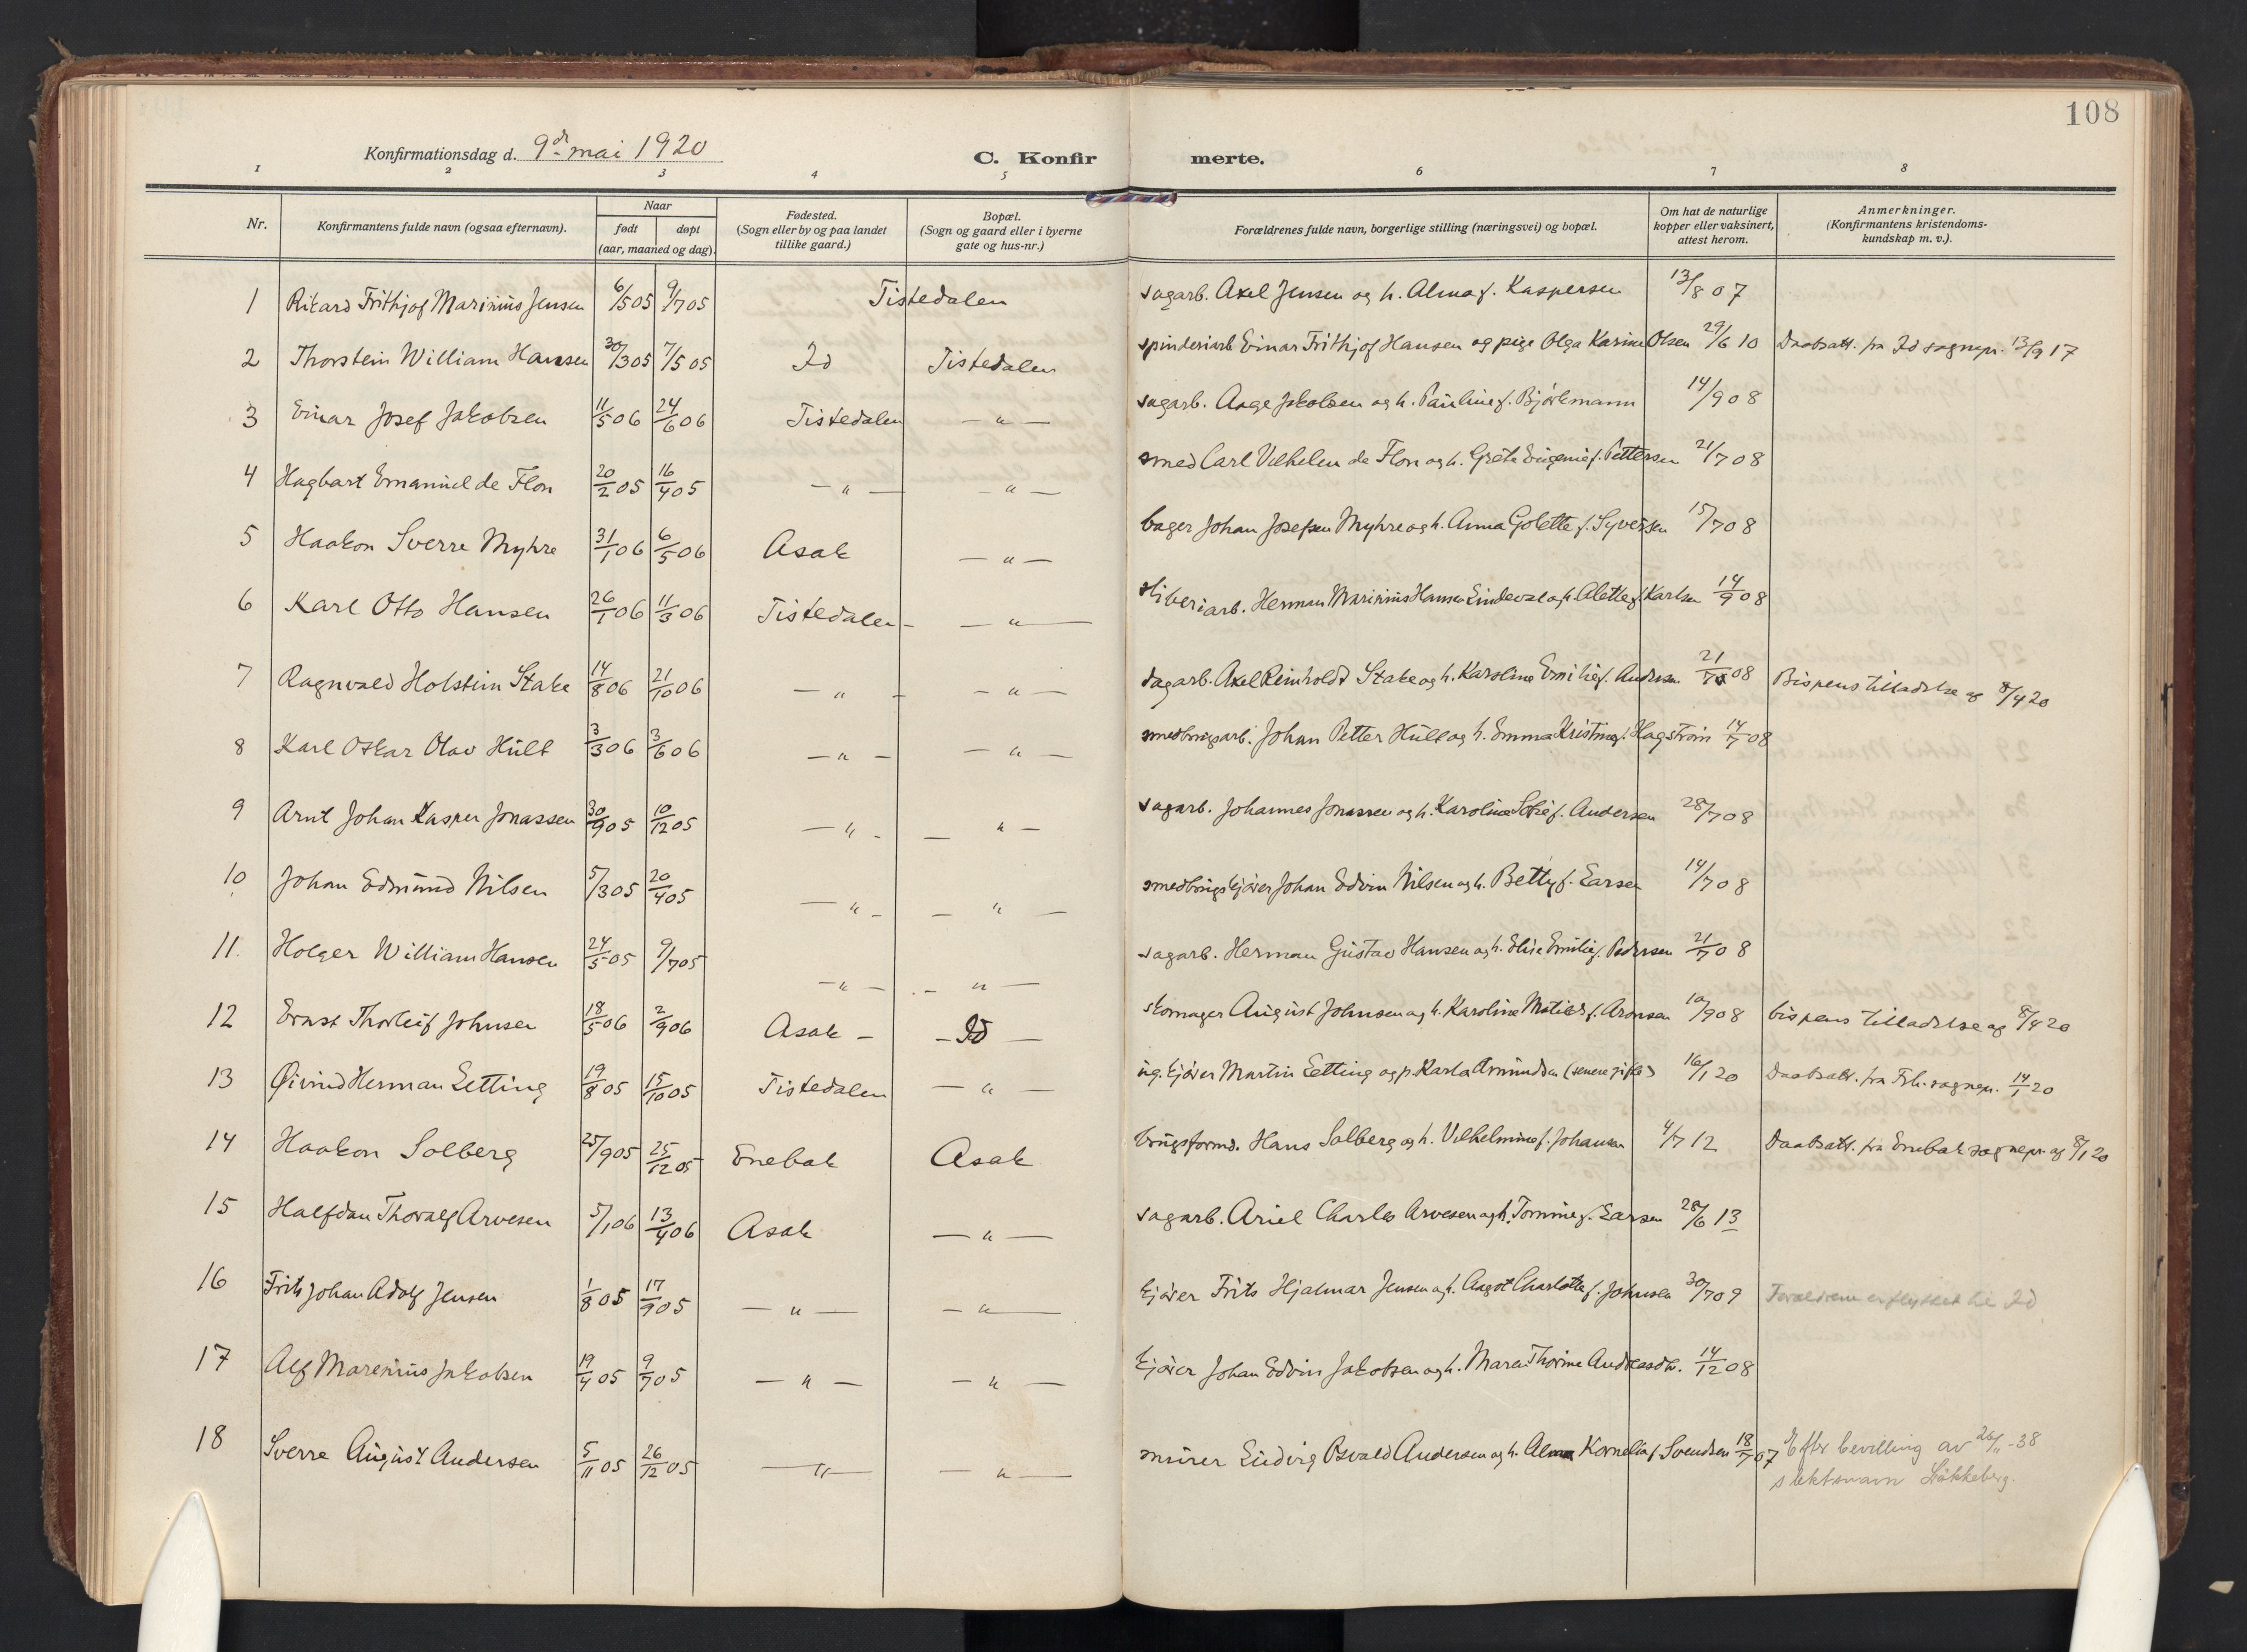 108
Konfirmationsdag d. 9de mai 1920
C. Konfir merte.
1 2 3 4 5 6 7 8
Nr. Konfirmantens fulde navn (ogsaa efternavn). Naar født døpt (aar, maaned og dag). Fødested. (Sogn eller by og paa landet tillike gaard.) Bopæl. (Sogn og gaard eller i byerne gate og hus-nr.) Forældrenes fulde navn, borgerlige stilling (næringsvei) og bopæl. Om hat de naturlige kopper eller vaksinert, attest herom. Anmerkninger. (Konfirmantens kristendoms-kundskap m. v.).
1 Rikard Frithjof Marinius Jensen 6/5 05 9/7 05 Tistedalen sagarb. Axel Jensen og h. Alma f. Kaspersen 13/8 07
2 Thorstein William Hansen 30/3 05 7/5 05 Id Tistedalen spinderiarb Einar Frithjof Hansen og pige Olga Karine Olsen 29/6 10 Daabsatt. fra Id sognepr. 13/9 17
3 Einar Josef Jakobsen 11/5 06 24/6 06 Tistedalen — " — sagarb. Aage Jakobsen og h. Pauline f. Björkmann 14/9 08
4 Hagbart Emanuel de Flon 20/2 05 16/4 05 — " — — " — smed Carl Vilhelm de Flon og h. Grete Eugenie f. Pettersen 21/7 08
5 Haakon Sverre Myhre 31/1 06 6/5 06 Asak — " — bager Johan Josefsen Myhre og h. Anna Golette f. Syversen 15/7 08
6 Karl Otto Hansen 26/1 06 11/3 06 Tistedalen — " — sliberiarb. Herman Marinius Hansen Lindeval og h. Alette f. Karlsen 14/9 08
7 Ragnvald Holstein Stake 14/8 06 21/10 06 — " — — " — dagarb. Axel Reinholdt Stake og h. Karoline Emilie f. Andersen 21/7 08 Bispens tilladelse ag 8/4 20
8 Karl Oskar Olav Hult 3/3 06 3/6 06 — " — — " — smedbrugsarb. Johan Petter Hult og h. Emma Kristine f. Hagström 14/7 08
9 Arnt Johan Kasper Jonassen 30/9 05 10/12 05 — " — — " — sagarb. Johannes Jonassen og h. Karoline Sofie f. Andersen 28/7 08
10 Johan Edmund Nilsen 5/3 05 20/4 05 — " — — " — smedbrugskjörer Johan Edvin Nilsen og h. Betty f. Larsen 14/7 08
11. Holger William Hansen 24/5 05 9/7 05 — " — — " — sagarb. Herman Gustav Hansen og h. Elise Emilie f. Pedersen 21/7 08
12 Ernst Thorleif Johnsen 18/5 06 2/9 06 Asak — — Id — skomager August Johnsen og h. Karoline Matilde f. Aronsen 10/9 08 bispens tilladelse ag 8/4 20
13 Øivind Herman Letting 19/8 05 15/10 05 Tistedalen — " — ug. kjörer Martin Letting og p. Karla Amundsen (senere gifte) 16/1 20 Daabsatt. fra Frh. sognepr. 14/1 20
14 Haakon Solberg 25/9 05 25/12 05 Enebak Asak brugsformd. Hans Solberg og h. Vilhelmine f. Johansen 4/7 12 Daabsatt. fra Enebak sognepr. ag 8/1 20
15 Halfdan Thoralf Arvesen 5/1 06 13/4 06 Asak — " — sagarb. Ariel Charles Arvesen og h. Tomine f. Larsen 28/6 13
16 Frits Johan Adolf Jensen 1/8 05 17/9 05 — " — — " — kjörer Frits Hjalmar Jensen og h. Aagot Charlotte f. Johnsen 30/7 09 Foreldrene er flyttet til Id
17 Alf Marenius Jakobsen 19/4 05 9/7 05 — " — — " — kjörer Johan Edvin Jakobsen og h. Maren Thorine Andreasdtr. 14/12 08
18 Sverre August Andersen 5/11 05 26/12 05 — " — — " — murer Ludvig Osvald Andersen og h. Kornelia f. Svendsen 18/7 07 Efter bevilling av 26/11-38
slektsnavn Løkkeberg.